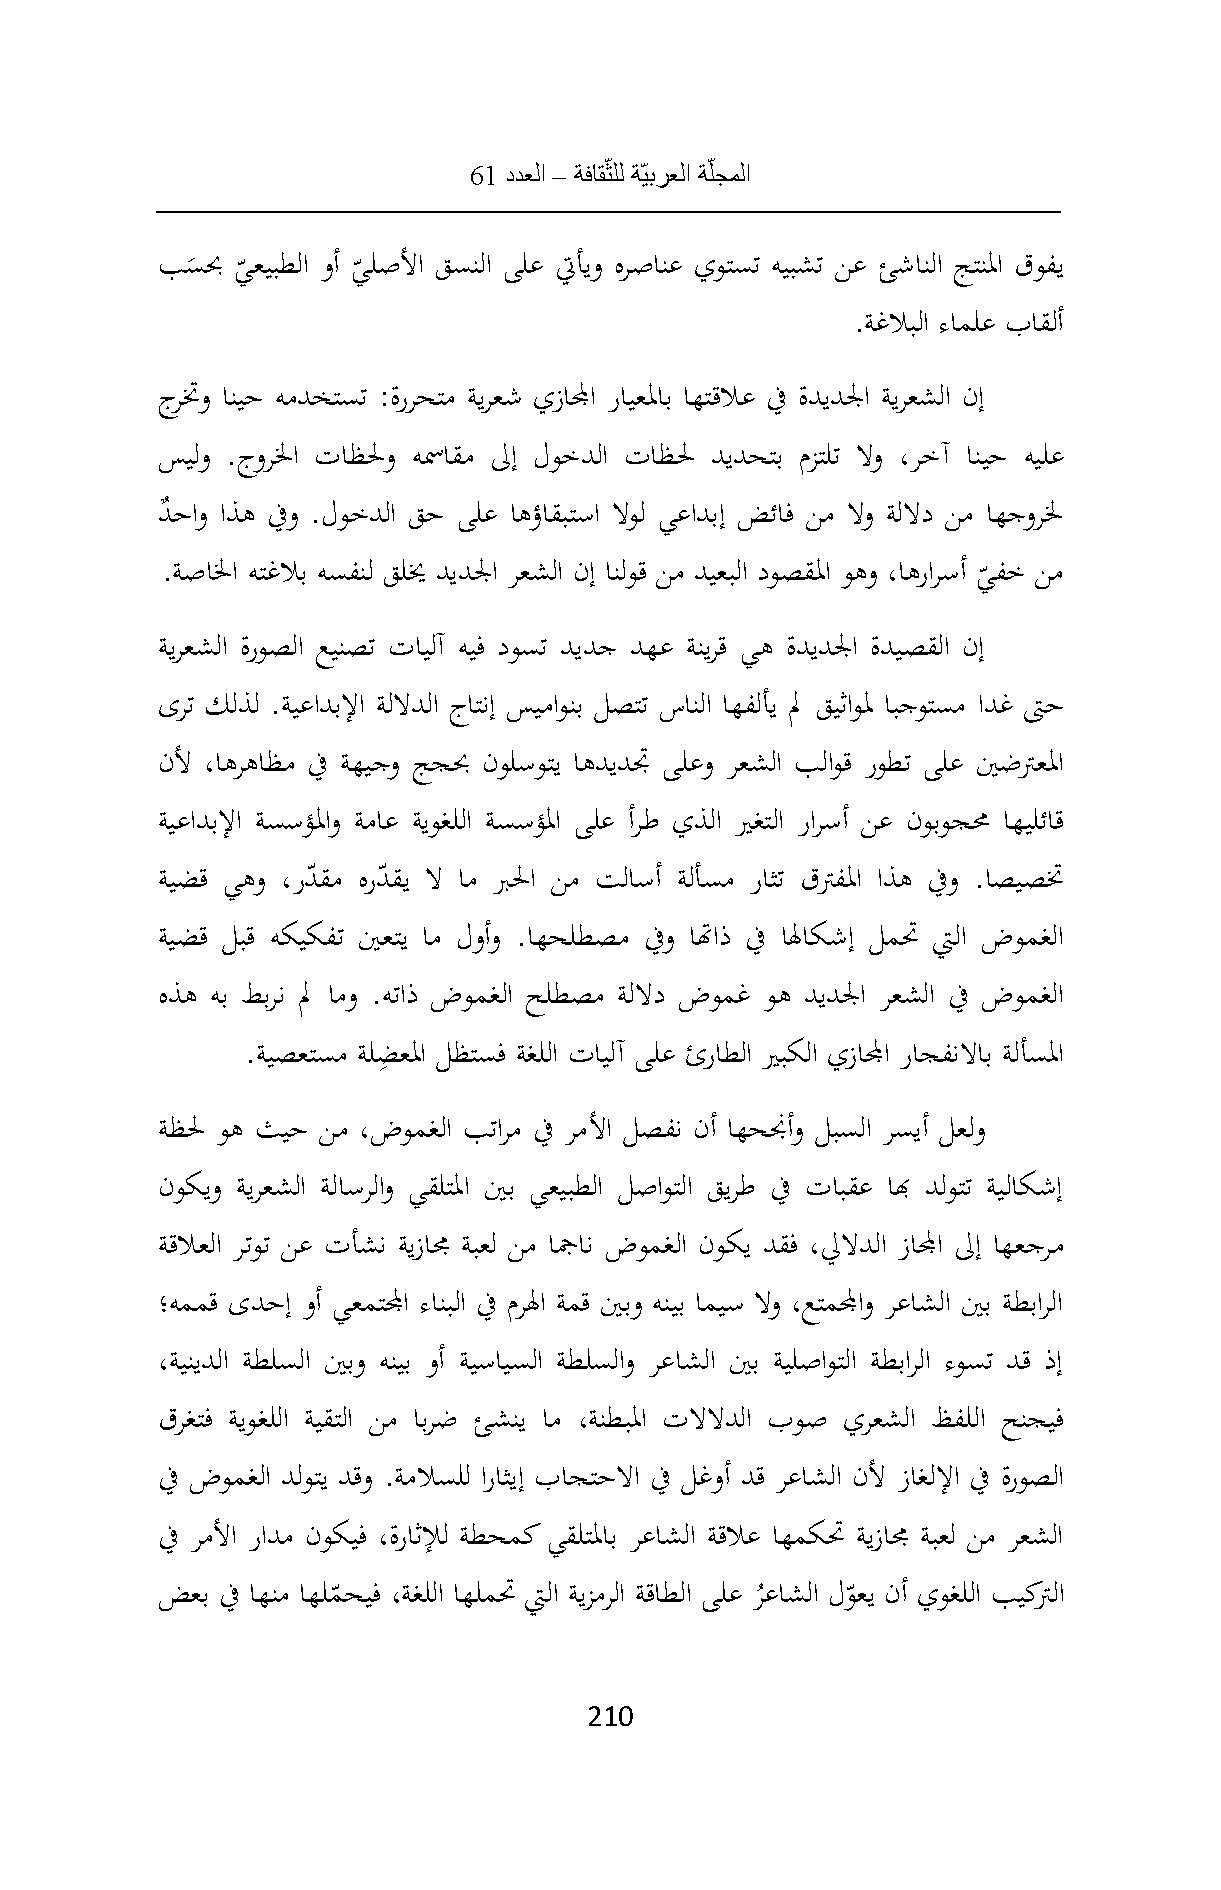 المجلّة العربيّة للثّقافة – العدد 61
يفوق المنتج الناشئ عن تشبيه تستوي عناصره ويأتي على النسق الأصليّ أو الطبيعيّ بحسَب
ألقاب علماء البلاغة.
إن الشعرية الجديدة في علاقتها بالمعيار المجازي شعرية متحررة: تستخدمه حينا وتخرج
عليه حينا آخر، ولا تلتزم بتحديد لحظات الدخول إلى مقاسمه ولحظات الخروج. وليس
لخروجها من دلالة ولا من فائض إبداعي لولا استبقاؤها على حق الدخول. وفي هذا واحدٌ
من خفيّ أسرارها، وهو المقصود البعيد من قولنا إن الشعر الجديد يخلق لنفسه بلاغته الخاصة.
إن القصيدة الجديدة هي قرينة عهد جديد تسود فيه آليات تصنيع الصورة الشعرية
حتى غدا مستوجبا لمواثيق لم يألفها الناس تتصل بنواميس إنتاج الدلالة الإبداعية. لذلك ترى
المعترضين على تطور قوالب الشعر وعلى تجديدها يتوسلون بحجج وجيهة في مظاهرها، لأن
قائليها محجوبون عن أسرار التغير الذي طرأ على المؤسسة اللغوية عامة والمؤسسة الإبداعية
تخصيصا. وفي هذا المفترق تثار مسألة أسالت من الحبر ما لا يقدّره مقدّر، وهي قضية
الغموض التي تحمل إشكالها في ذاتها وفي مصطلحها. وأول ما يتعين تفكيكه قبل قضية
الغموض في الشعر الجديد هو غموض دلالة مصطلح الغموض ذاته. وما لم نربط به هذه
المسألة بالانفجار المجازي الكبير الطارئ على آليات اللغة فستظل المعضِلة مستعصية.
ولعل أيسر السبل وأنجحها أن نفصل الأمر في مراتب الغموض، من حيث هو لحظة
إشكالية تتولد بها عقبات في طريق التواصل الطبيعي بين المتلقي والرسالة الشعرية ويكون
مرجعها إلى المجاز الدلالي، فقد يكون الغموض ناجما من لعبة مجازية نشأت عن توتر العلاقة
الرابطة بين الشاعر والمجتمع، ولا سيما بينه وبين قمة الهرم في البناء المجتمعي أو إحدى قممه؛
إذ قد تسوء الرابطة التواصلية بين الشاعر والسلطة السياسية أو بينه وبين السلطة الدينية،
فيجنح اللفظ الشعري صوب الدلالات المبطنة، ما ينشئ ضربا من التقية اللغوية فتغرق
الصورة في الإلغاز لأن الشاعر قد أوغل في الاحتجاب إيثارا للسلامة. وقد يتولد الغموض في
الشعر من لعبة مجازية تحكمها علاقة الشاعر بالمتلقي كمحطة للإثارة، فيكون مدار الأمر في
التركيب اللغوي أن يعوّل الشاعرُ على الطاقة الرمزية التي تحملها اللغة، فيحمّلها منها في بعض
210